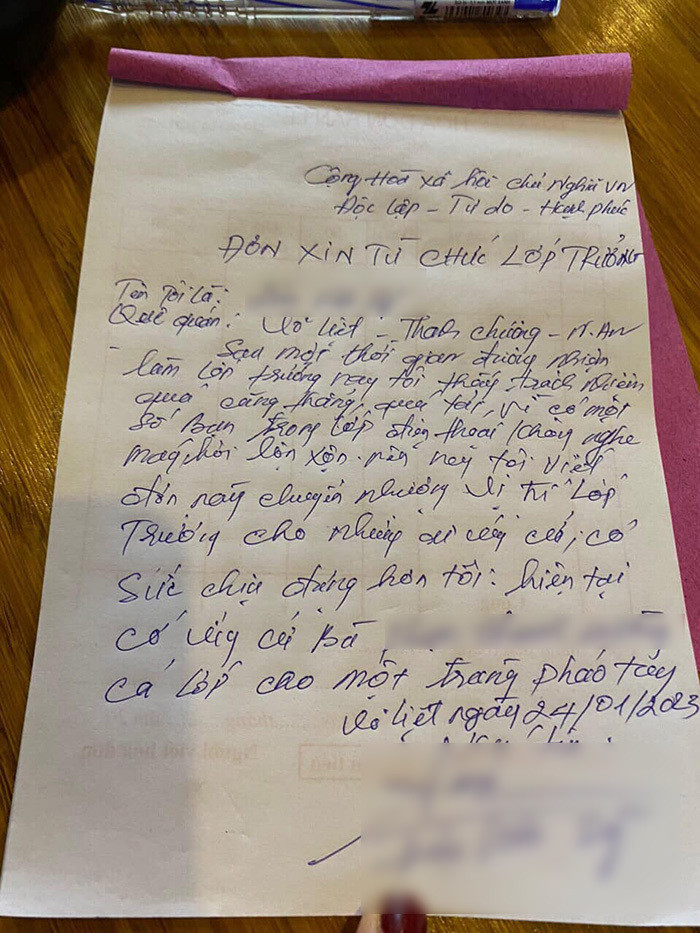 Cộng Hoà xã hội chủ Nghĩa VN
Độc lập - Tự do - Hạnh phúc
ĐƠN XIN TỪ CHỨC LỚP TRƯỞNG
Tên tôi là:
Quê quán: Võ Liệt - Thanh Chương - N.AN
- Sau một thời gian đương nhiệm
làm lớp trưởng nay tôi thấy trách nhiệm
quá căng thẳng, quá tải, vì có một
số Bạn trong lớp điện thoại không nghe
máy, hỏi lộn xộn. nên nay tôi viết
đơn này chuyển nhượng vị trí Lớp
Trưởng cho những ai ứng cử, có
sức chịu đựng hơn tôi: hiện tại
có ứng cử Bà
cả lớp cho một tràng pháo tay
Võ liệt ngày 24/01/2023